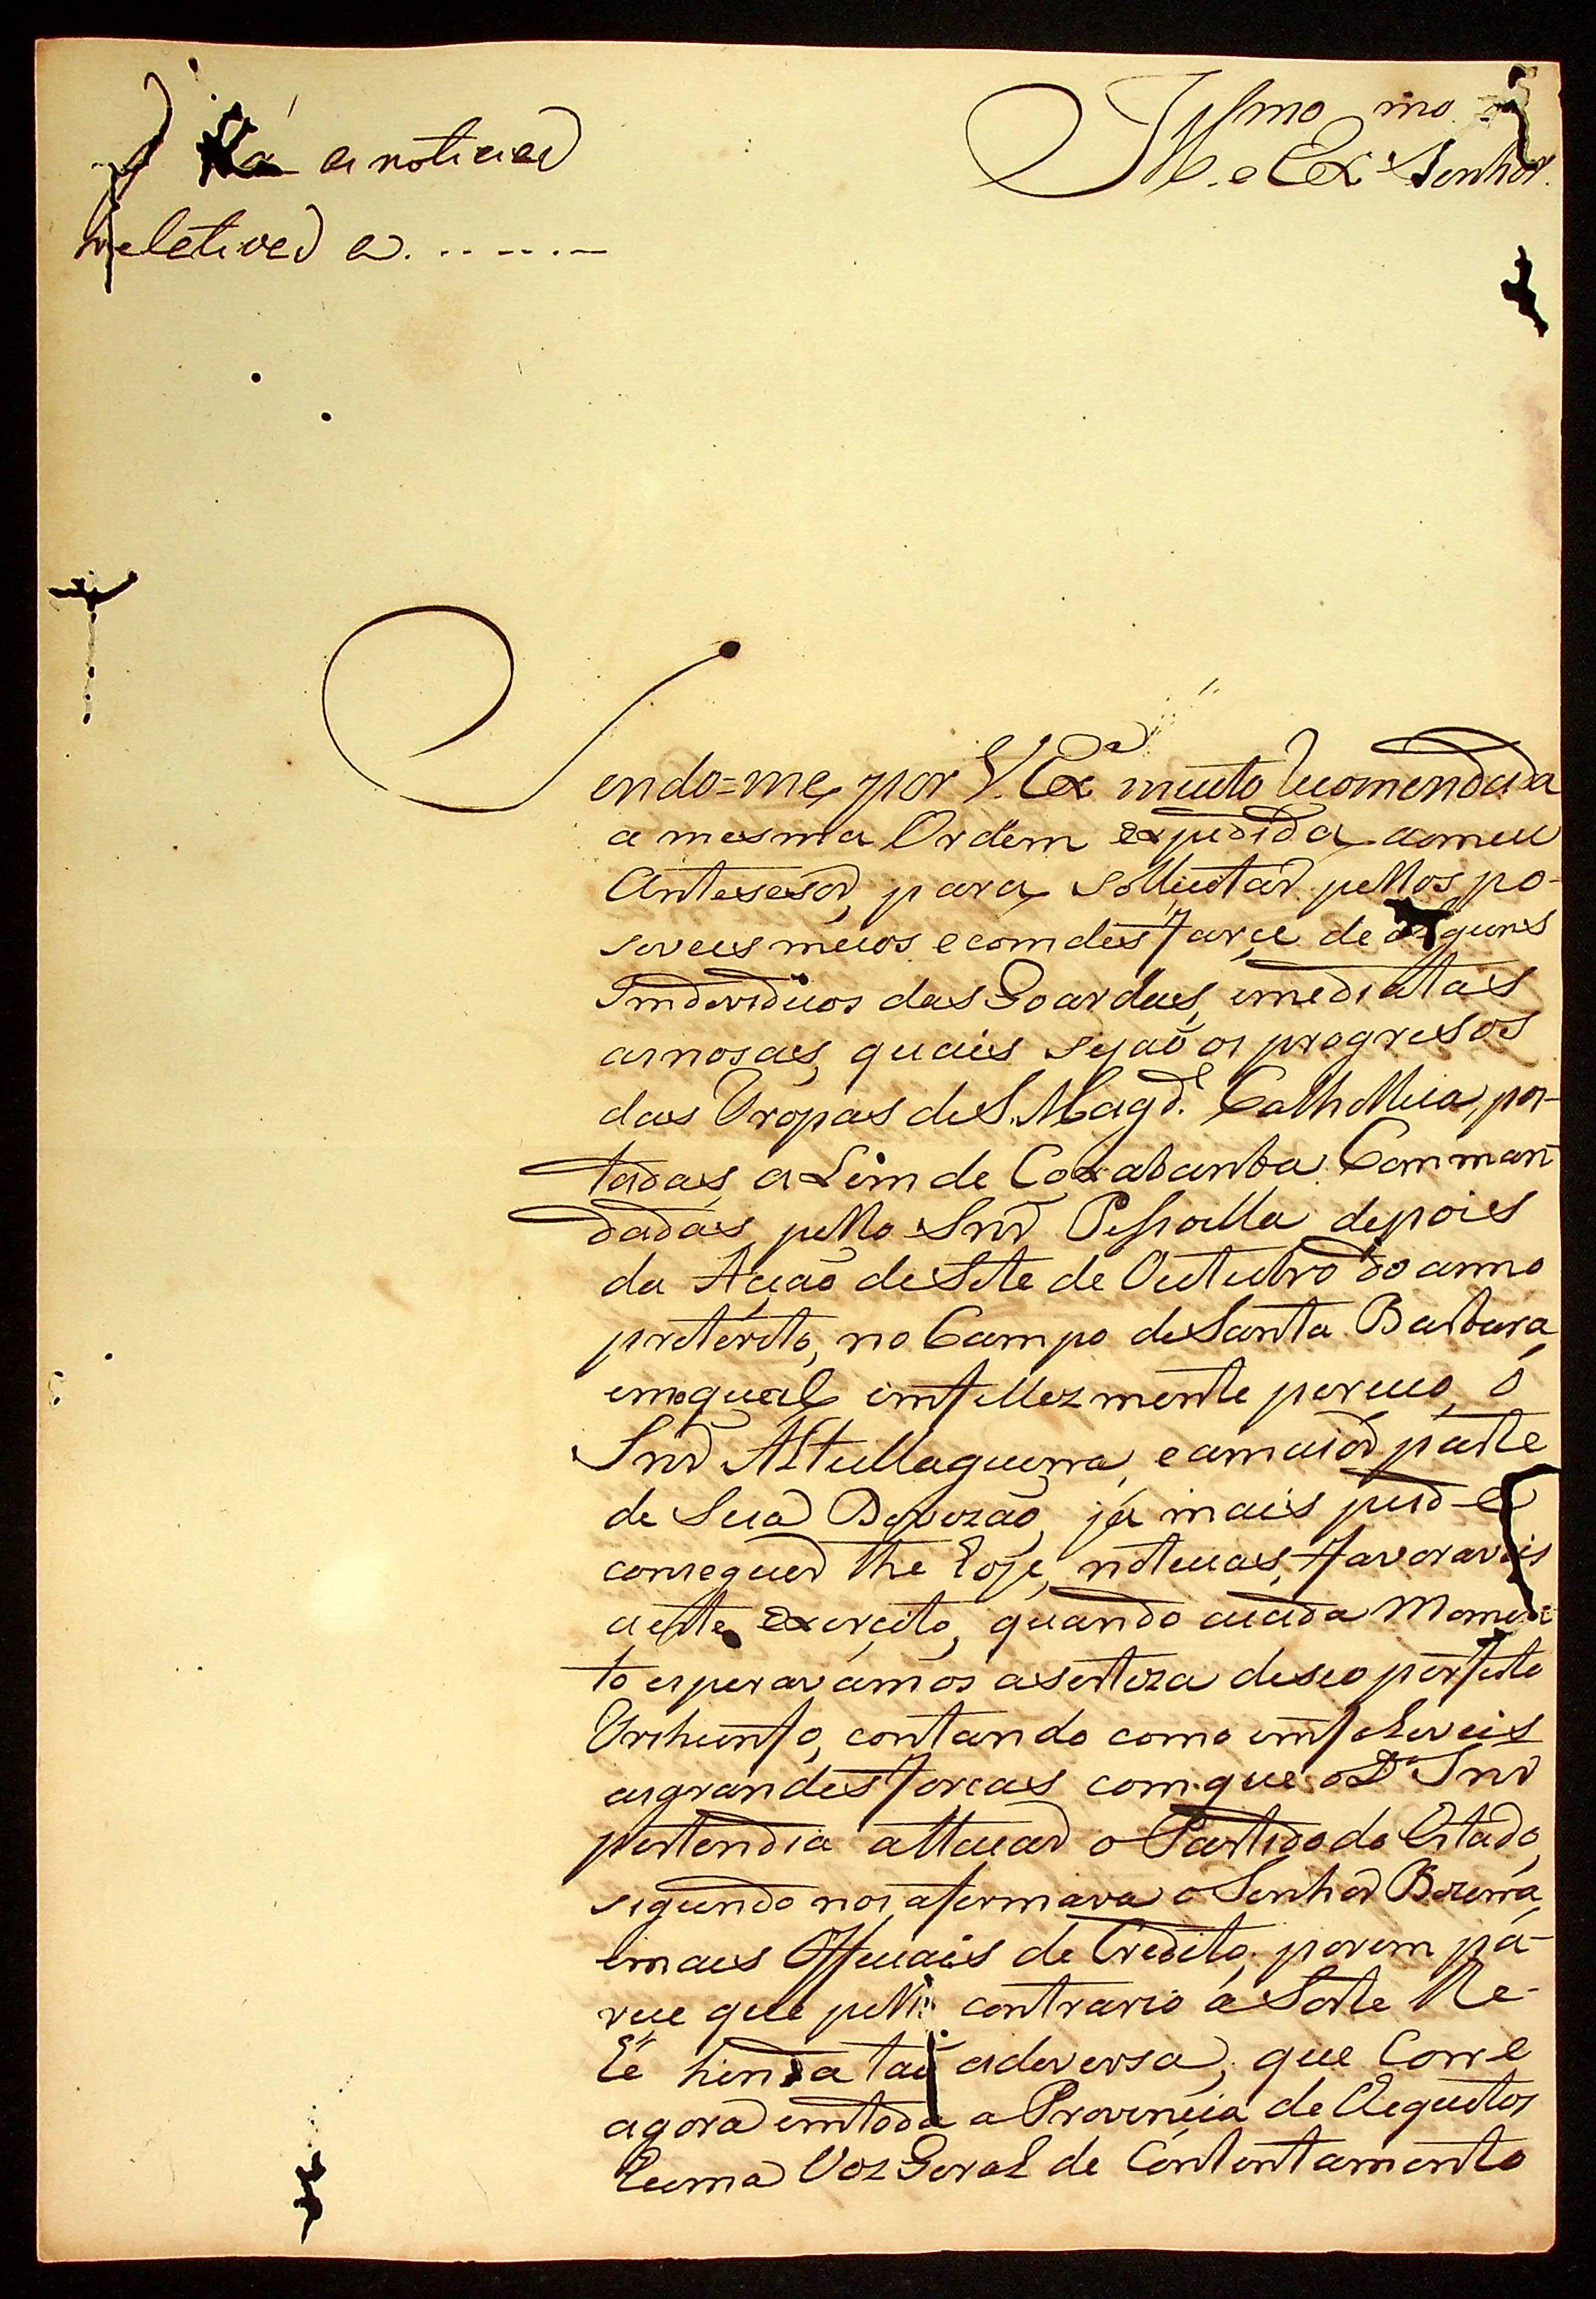 Dá as noticias
relativas a. - - - - - -
Illmo. e Exmo. Senhor.
Sendo=me por V. Exa. muito recomendada
a mesma Ordem expedida aomeu
Antesesor, para sollicitar pellos po-
siveis meios ecomdesfarce de alguns
Individuos das Goardas, imediatas
asnosas, quais sejaõ os progresos
das Tropas de S. Magde. Cathollica, pos-
tadas, a Lem de Coxabanba. Comman-
dadas, pello Snr. Pessoella depois
da Açaõ de Sete de Outubro do anno
preterito, no Campo de Santa Barbara,
emoqual imfellezmente pereceo, o
Snr. Altellaguerra, e amaior parte
de Sua Devezaõ, já mais pud-e
conseguir the hoje, noticias, favoraveis
a este exercito, quando acada Momen-
to esperavamos aserteza deseo perfeito
Trihunfo, contando como imfaliveis
asgrandes forcas com que o Do. Snr.
pertendia attacar o Partido do Estado,
segundo nos afermava o Senhor Bezerra,
emais Officiais de Credito; porem pa-
rece que pello contrario a Sorte lhe-
hé hinda taõ adeversa, que Corre
agora emtoda a Provincia de Chequitos
huma Voz Geral de Contentamento